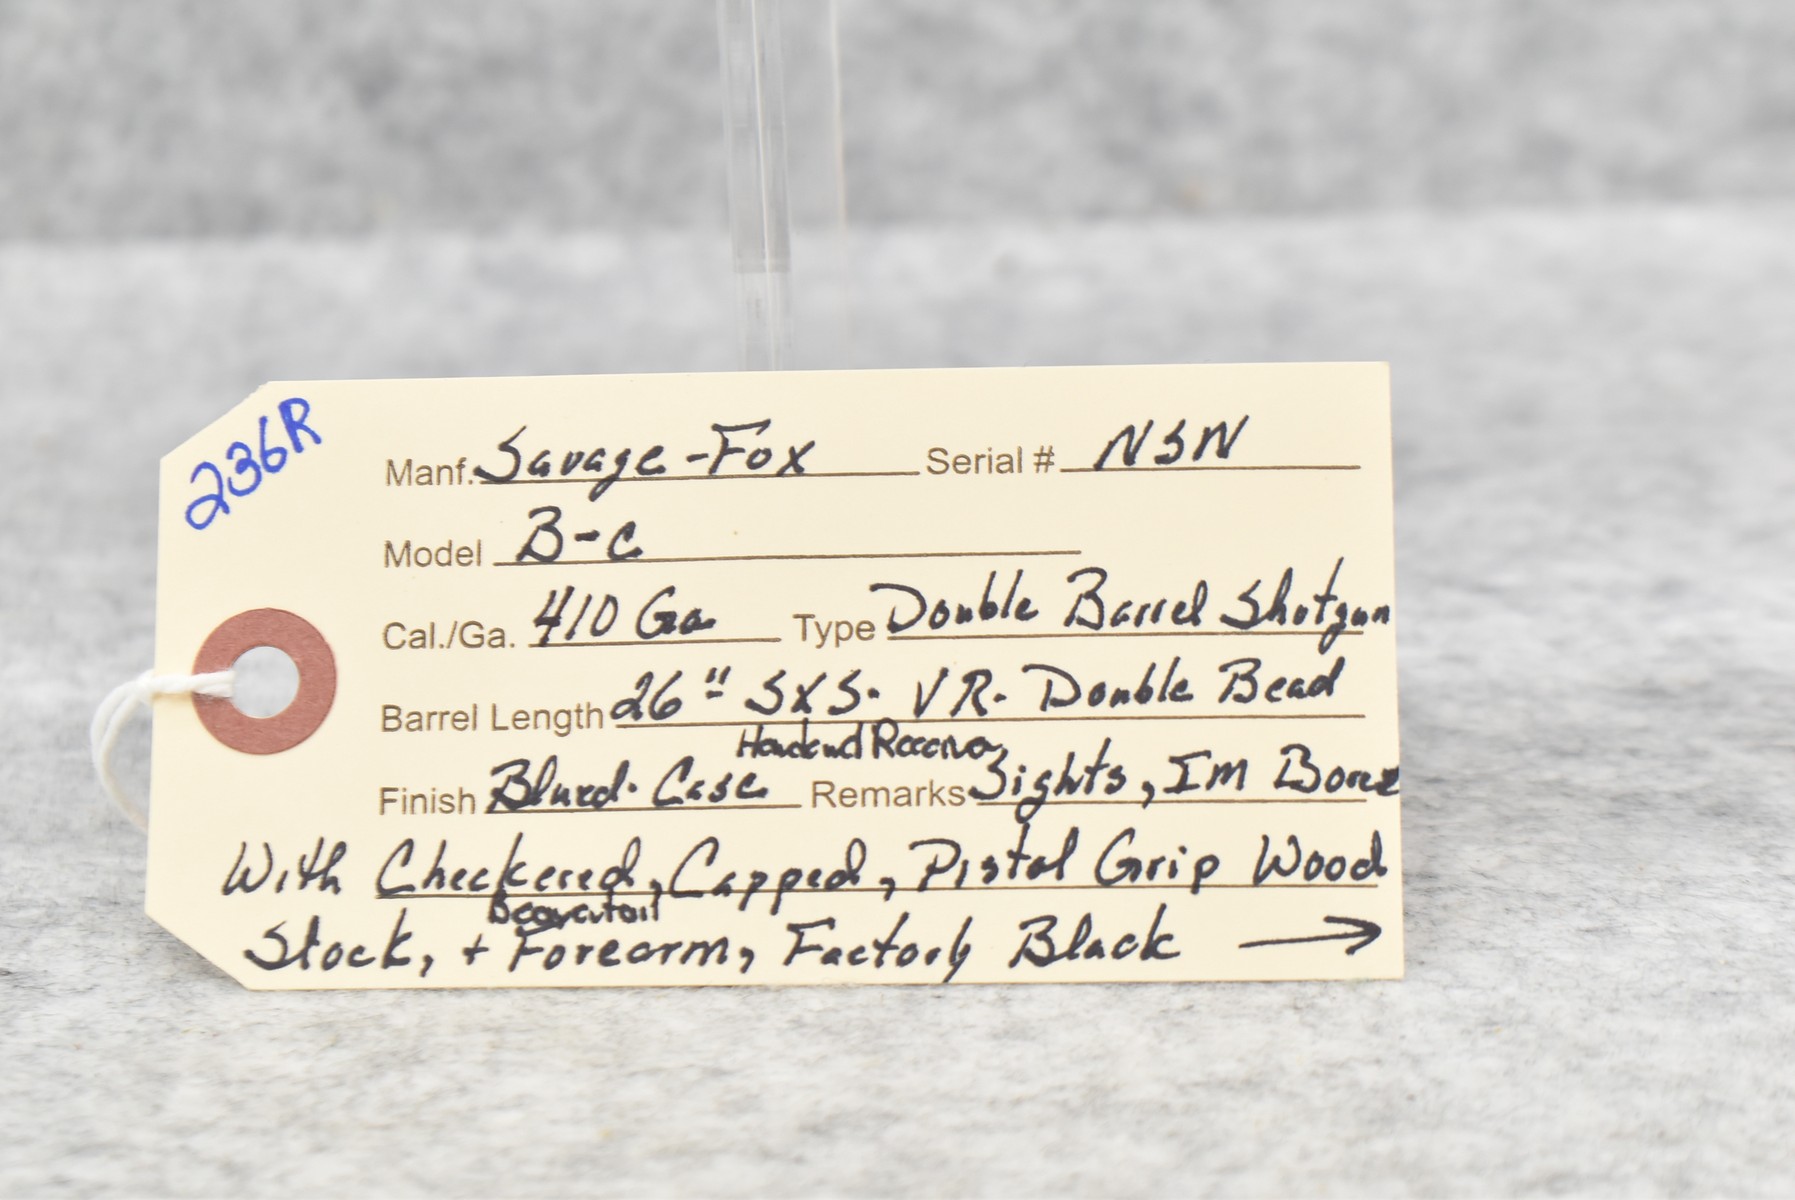 236R
Manf. Savage-Fox Serial # NSN
Model B-C
Cal./Ga. 410 Ga. Type Double Barrel Shotgun
Barrel Length 26" SXS. VR. Double Bead
Finish Blued. Case Remarks Sights, IM Bores
With Checkered, Capped, Pistol Grip Wood
Beavertail
Stock, + Forearm, Factory Black →